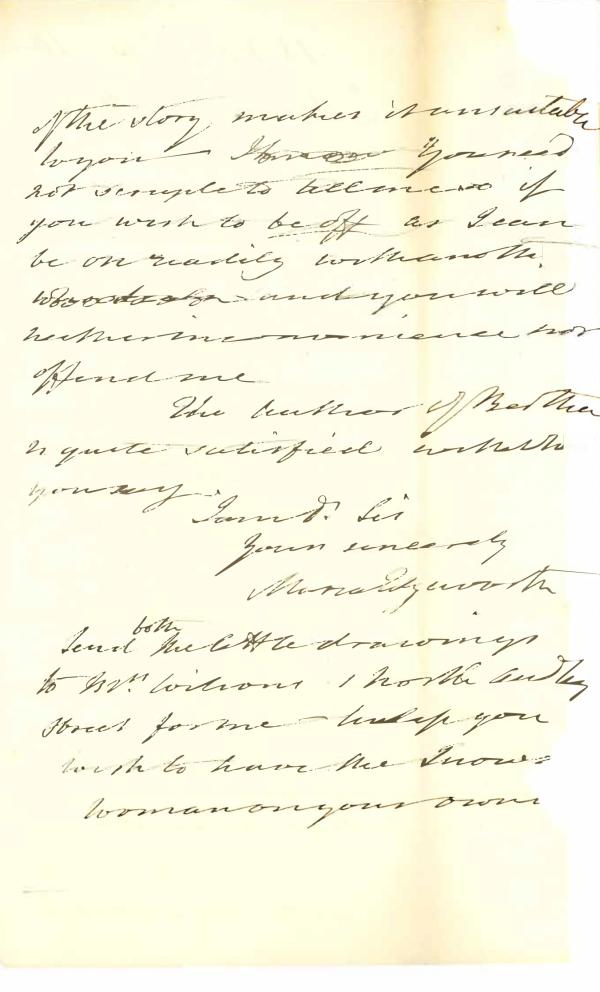 of the story makes it unsuitable
to you — You need
not scruple to tell me so if
you wish to be off as I can
be on readily with another
and you will
neither inconvenience nor
offend me
The Author of Bertha
is quite satisfied with what
you say.
I am Dr. Sir
Yours sincerely
Maria Edgeworth
both
Send the little drawings
to Mrs. Wilsons 1 North Audley
Street for me — unless you
wish to have the Snow=
woman on your own